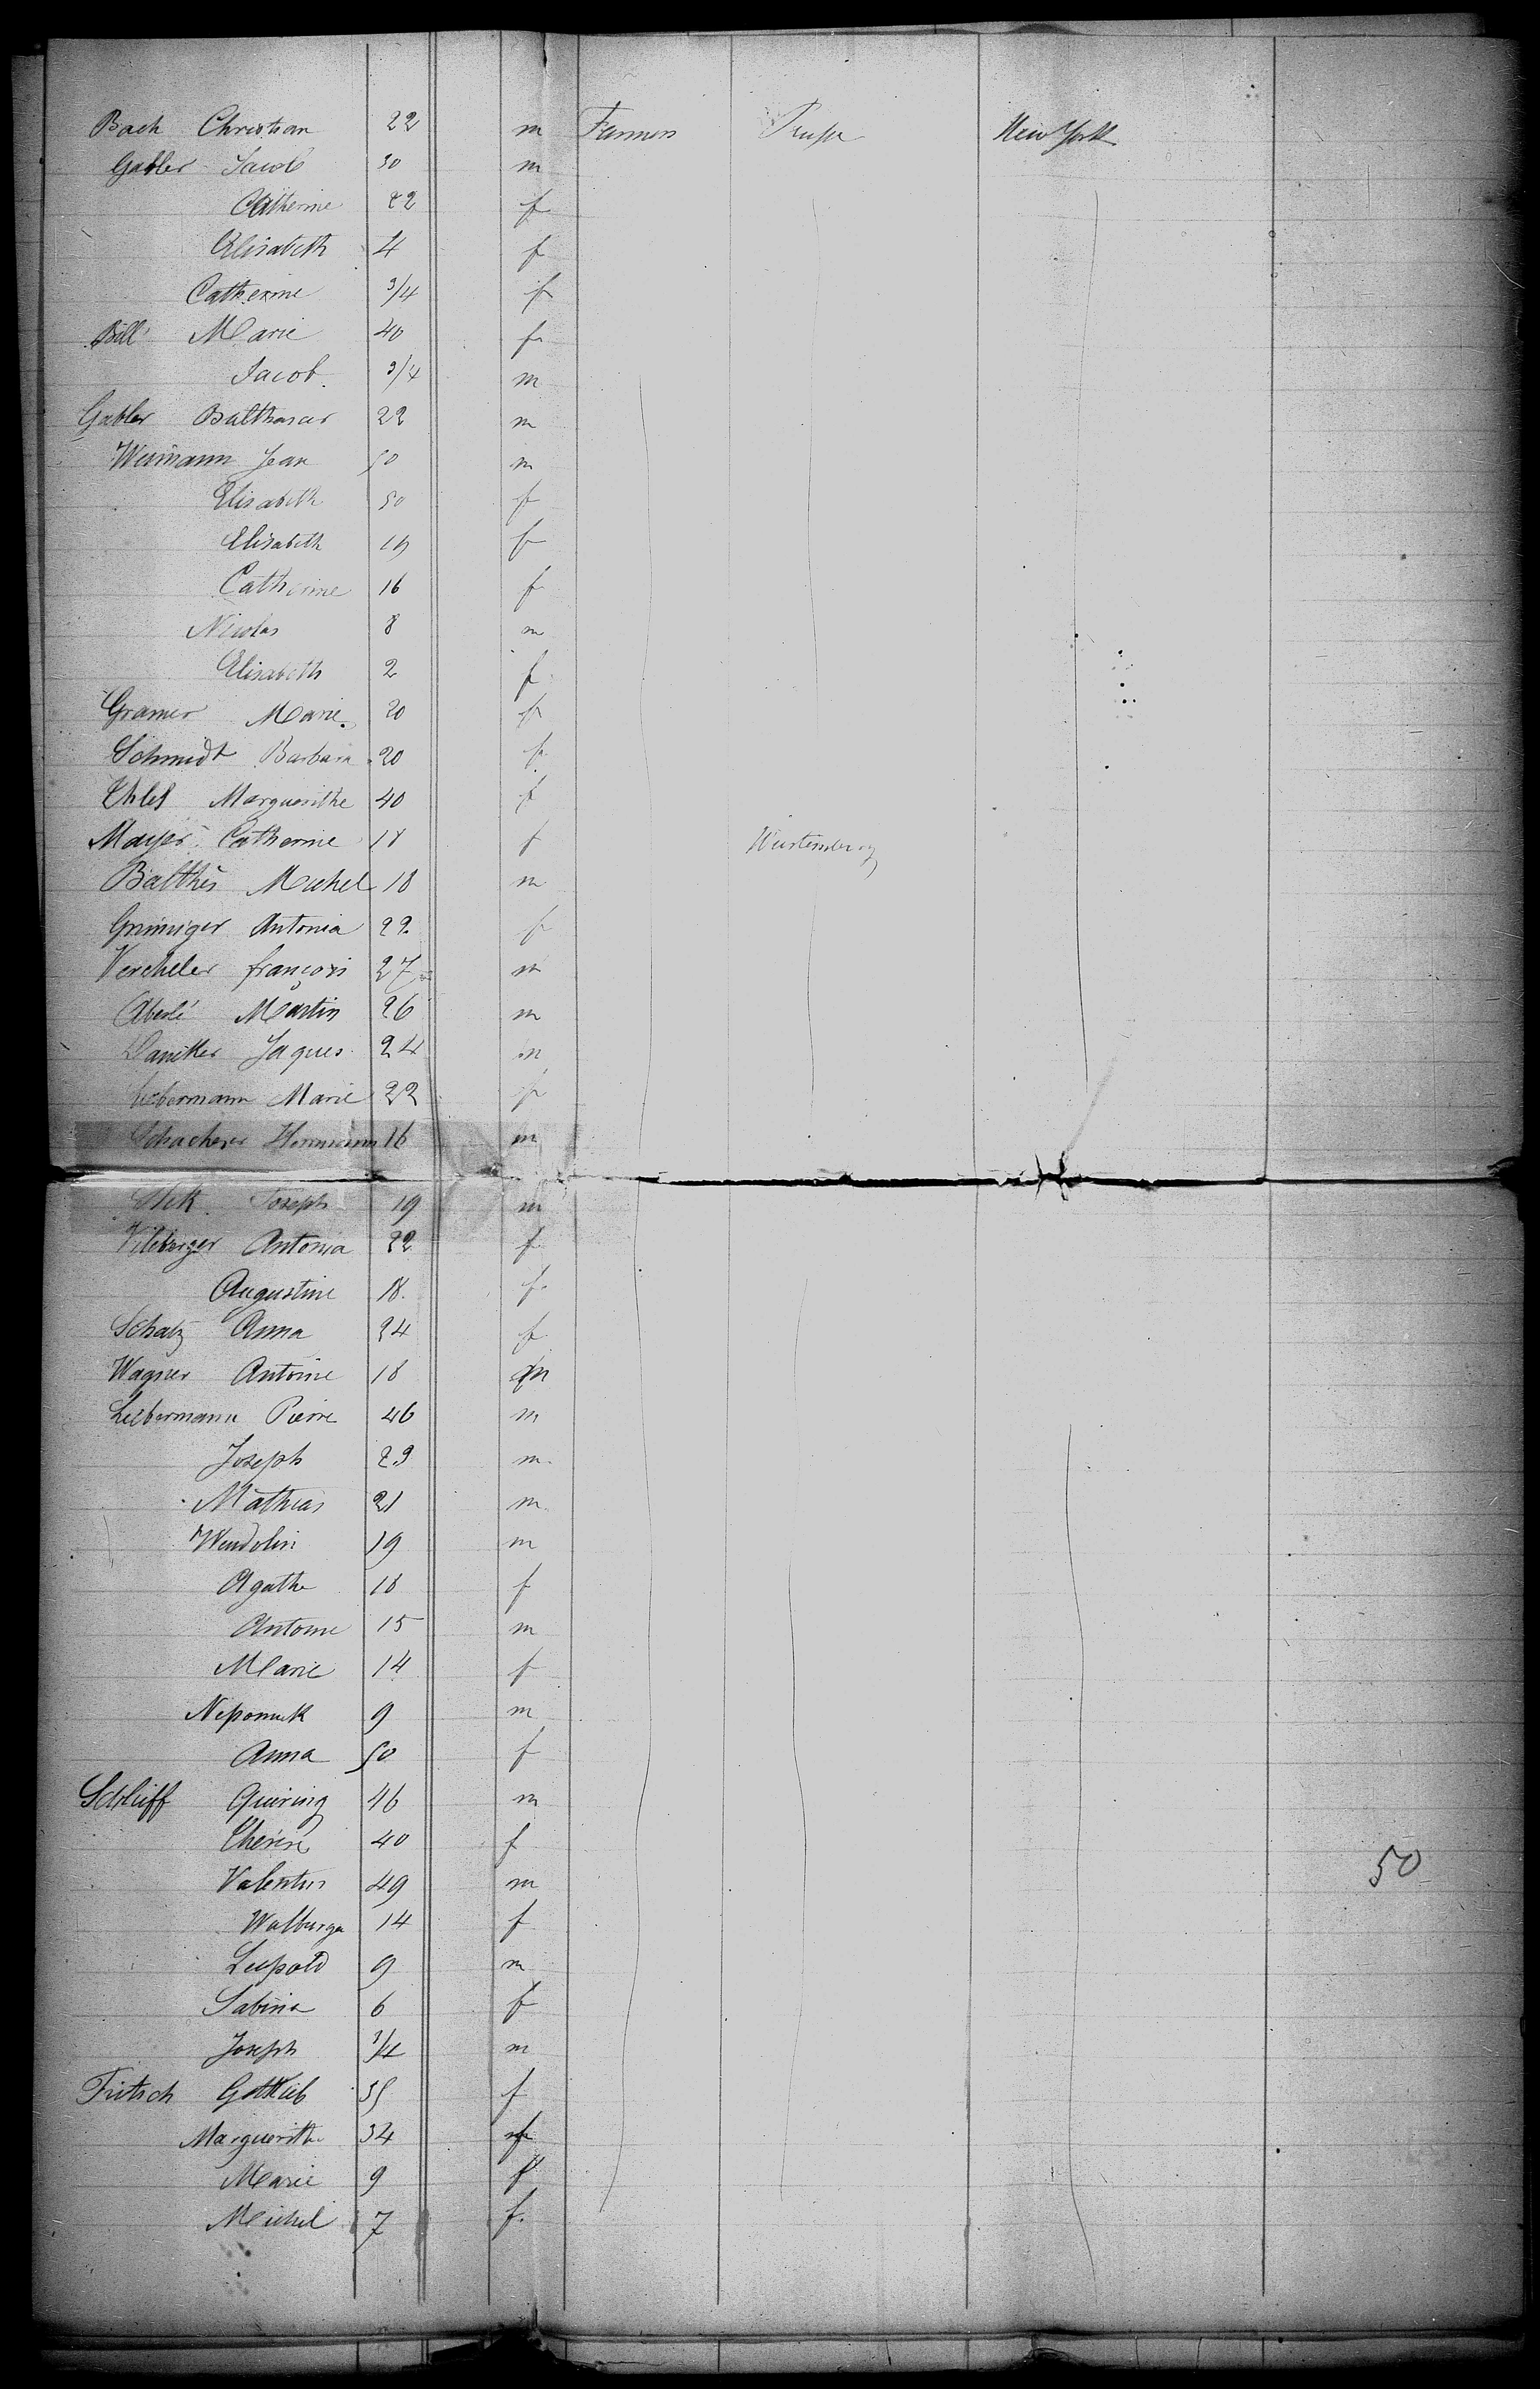 Bach Christian 22 m Farmers Prusse New York
Gabler Jacob 30 m
Catherine 22 f
Elisabeth 4 f
Catherine 3/4 f
Bill Marie 40 f
Jacob 3/4 m
Gabler Balthasar 22 m
Weimann Jean 50 m
Elisabeth 50 f
Elisabeth 19 f
Catherine 16 f
Nicolas 8 m
Elisabeth 2 f
Gramer Marie 20 f
Schmidt Barbara 20 f
Marguerithe 40 f
Mayer Catherine 18 f Wurtemberg
Balthes Michel 18 m
Antonia 22 f
Vercheler françois 27 m
Aberlé Martin 26 m
Jaques 24 m
Liebermann Marie 22 f
Schacherer Hermann 16 m
Joseph 19 m
Vileberger Antonia 22 f
Augustine 18 f
Schatz Anna 24 f
Wagner Antoine 18 m
Liebermann Pierre 46 m
Joseph 23 m
Mathias 21 m
Wendolin 19 m
Agathe 18 f
Antoine 15 m
Marie 14 f
Nepomuk 9 m
Anna 50 f
Schleiff Quiring 46 m
Therese 40 f
Valentin 49 m
Walburga 14 f
Leopold 9 m
Sabina 6 f
Joseph 3/4 m
50
Fritsch Gottlieb 35 f
Marguerithe 34 f
Marie 9 f
Michel 7 f.